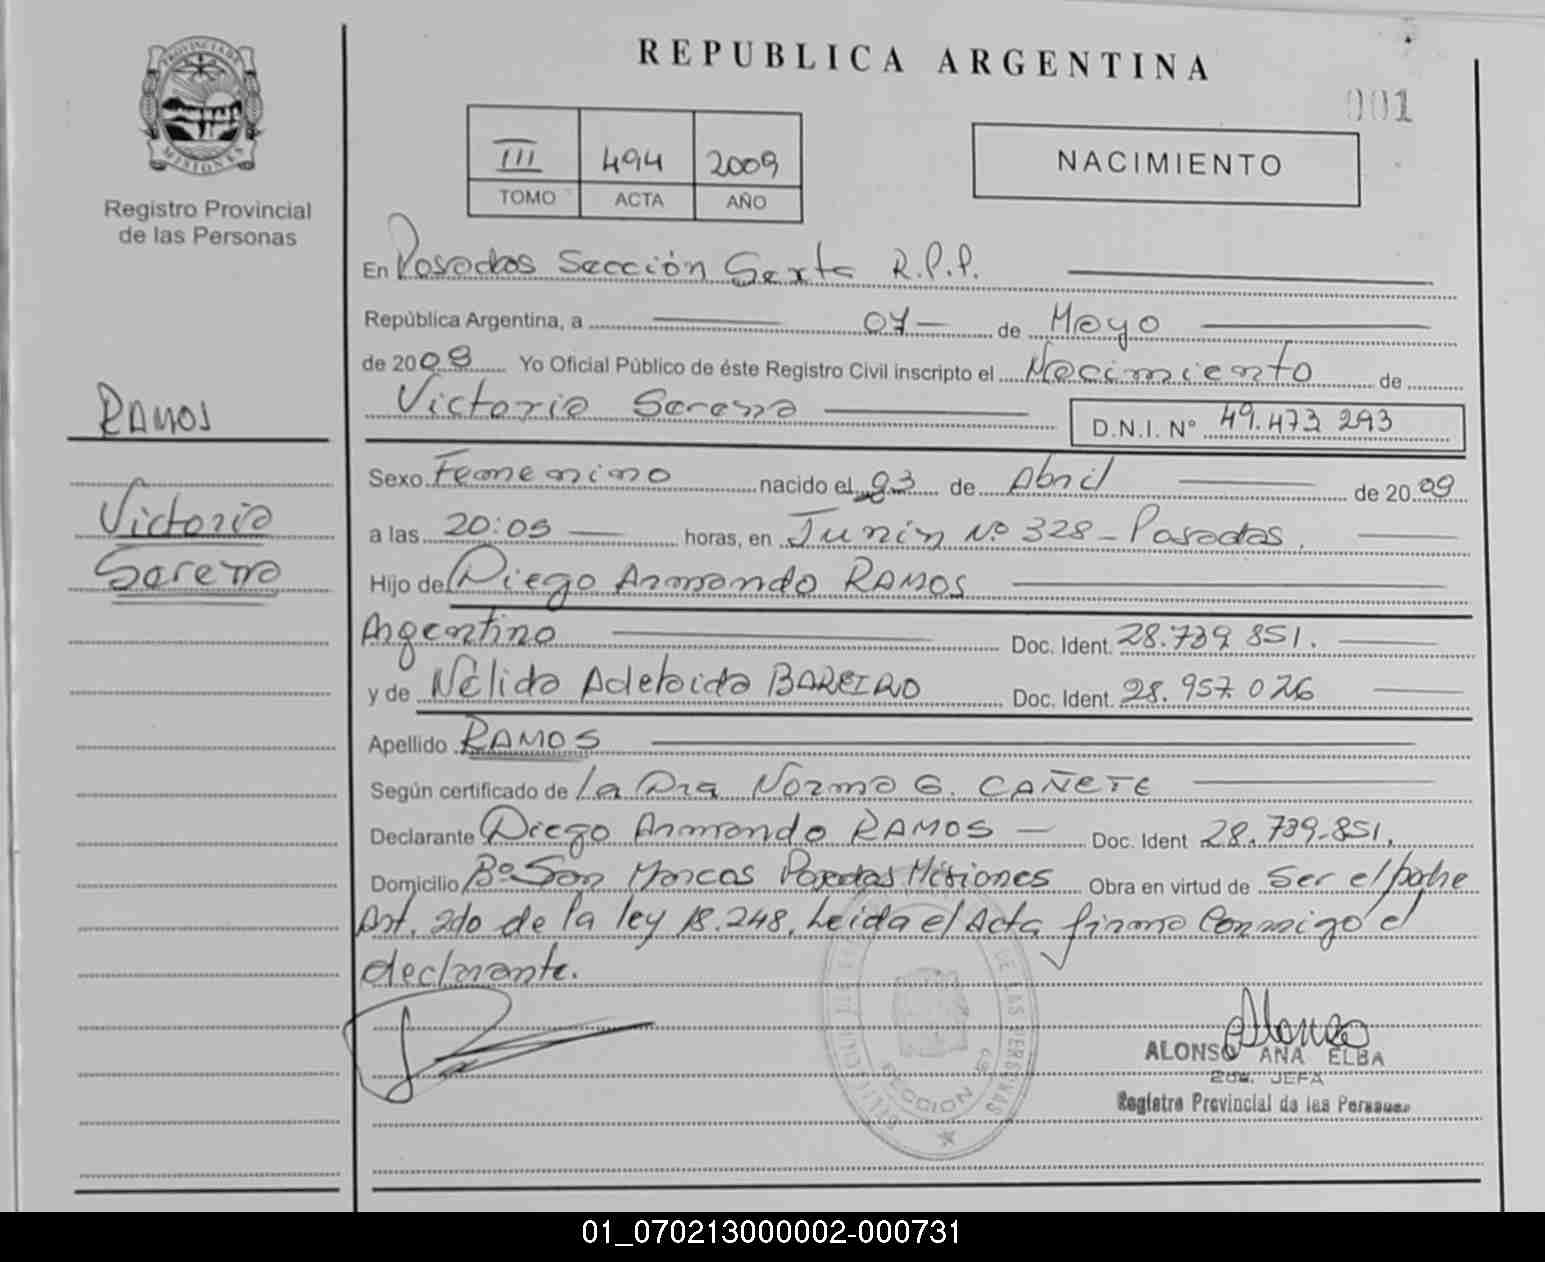 REPUBLICA ARGENTINA
001
PROVINCIA DE MISIONES
Registro Provincial
de las Personas
III 494 2009
TOMO ACTA AÑO
NACIMIENTO
En Posadas Sección Sexta R.P.P.
República Argentina, a 07 de Mayo
de 2009 Yo Oficial Público de éste Registro Civil inscripto el Nacimiento de
Victoria Serena D.N.I. Nº 49.473 293
RAMOS
Victoria
Serena
Sexo Femenino nacido el 23 de Abril de 2009
a las 20:05 horas, en Junin Nº 328 - Posadas.
Hijo de Diego Armando RAMOS
Argentino Doc. Ident. 28.739 851.
y de Nélida Adelaida BAREIRO Doc. Ident. 28.957 026
Apellido RAMOS
Según certificado de la Dra Norma G. CAÑETE
Declarante Diego Armando RAMOS Doc. Ident 28.739.851.
Domicilio Bº San Marcos Posadas Misiones Obra en virtud de Ser el padre
Art. 2do de la ley 18.248. Leida el Acta firma Conmigo el
declarante.
DE LAS PERSONAS
SECCION 6ta
Alonso
ALONSO ANA ELBA
2da. JEFA
Registro Provincial de las Personas
01_070213000002-000731